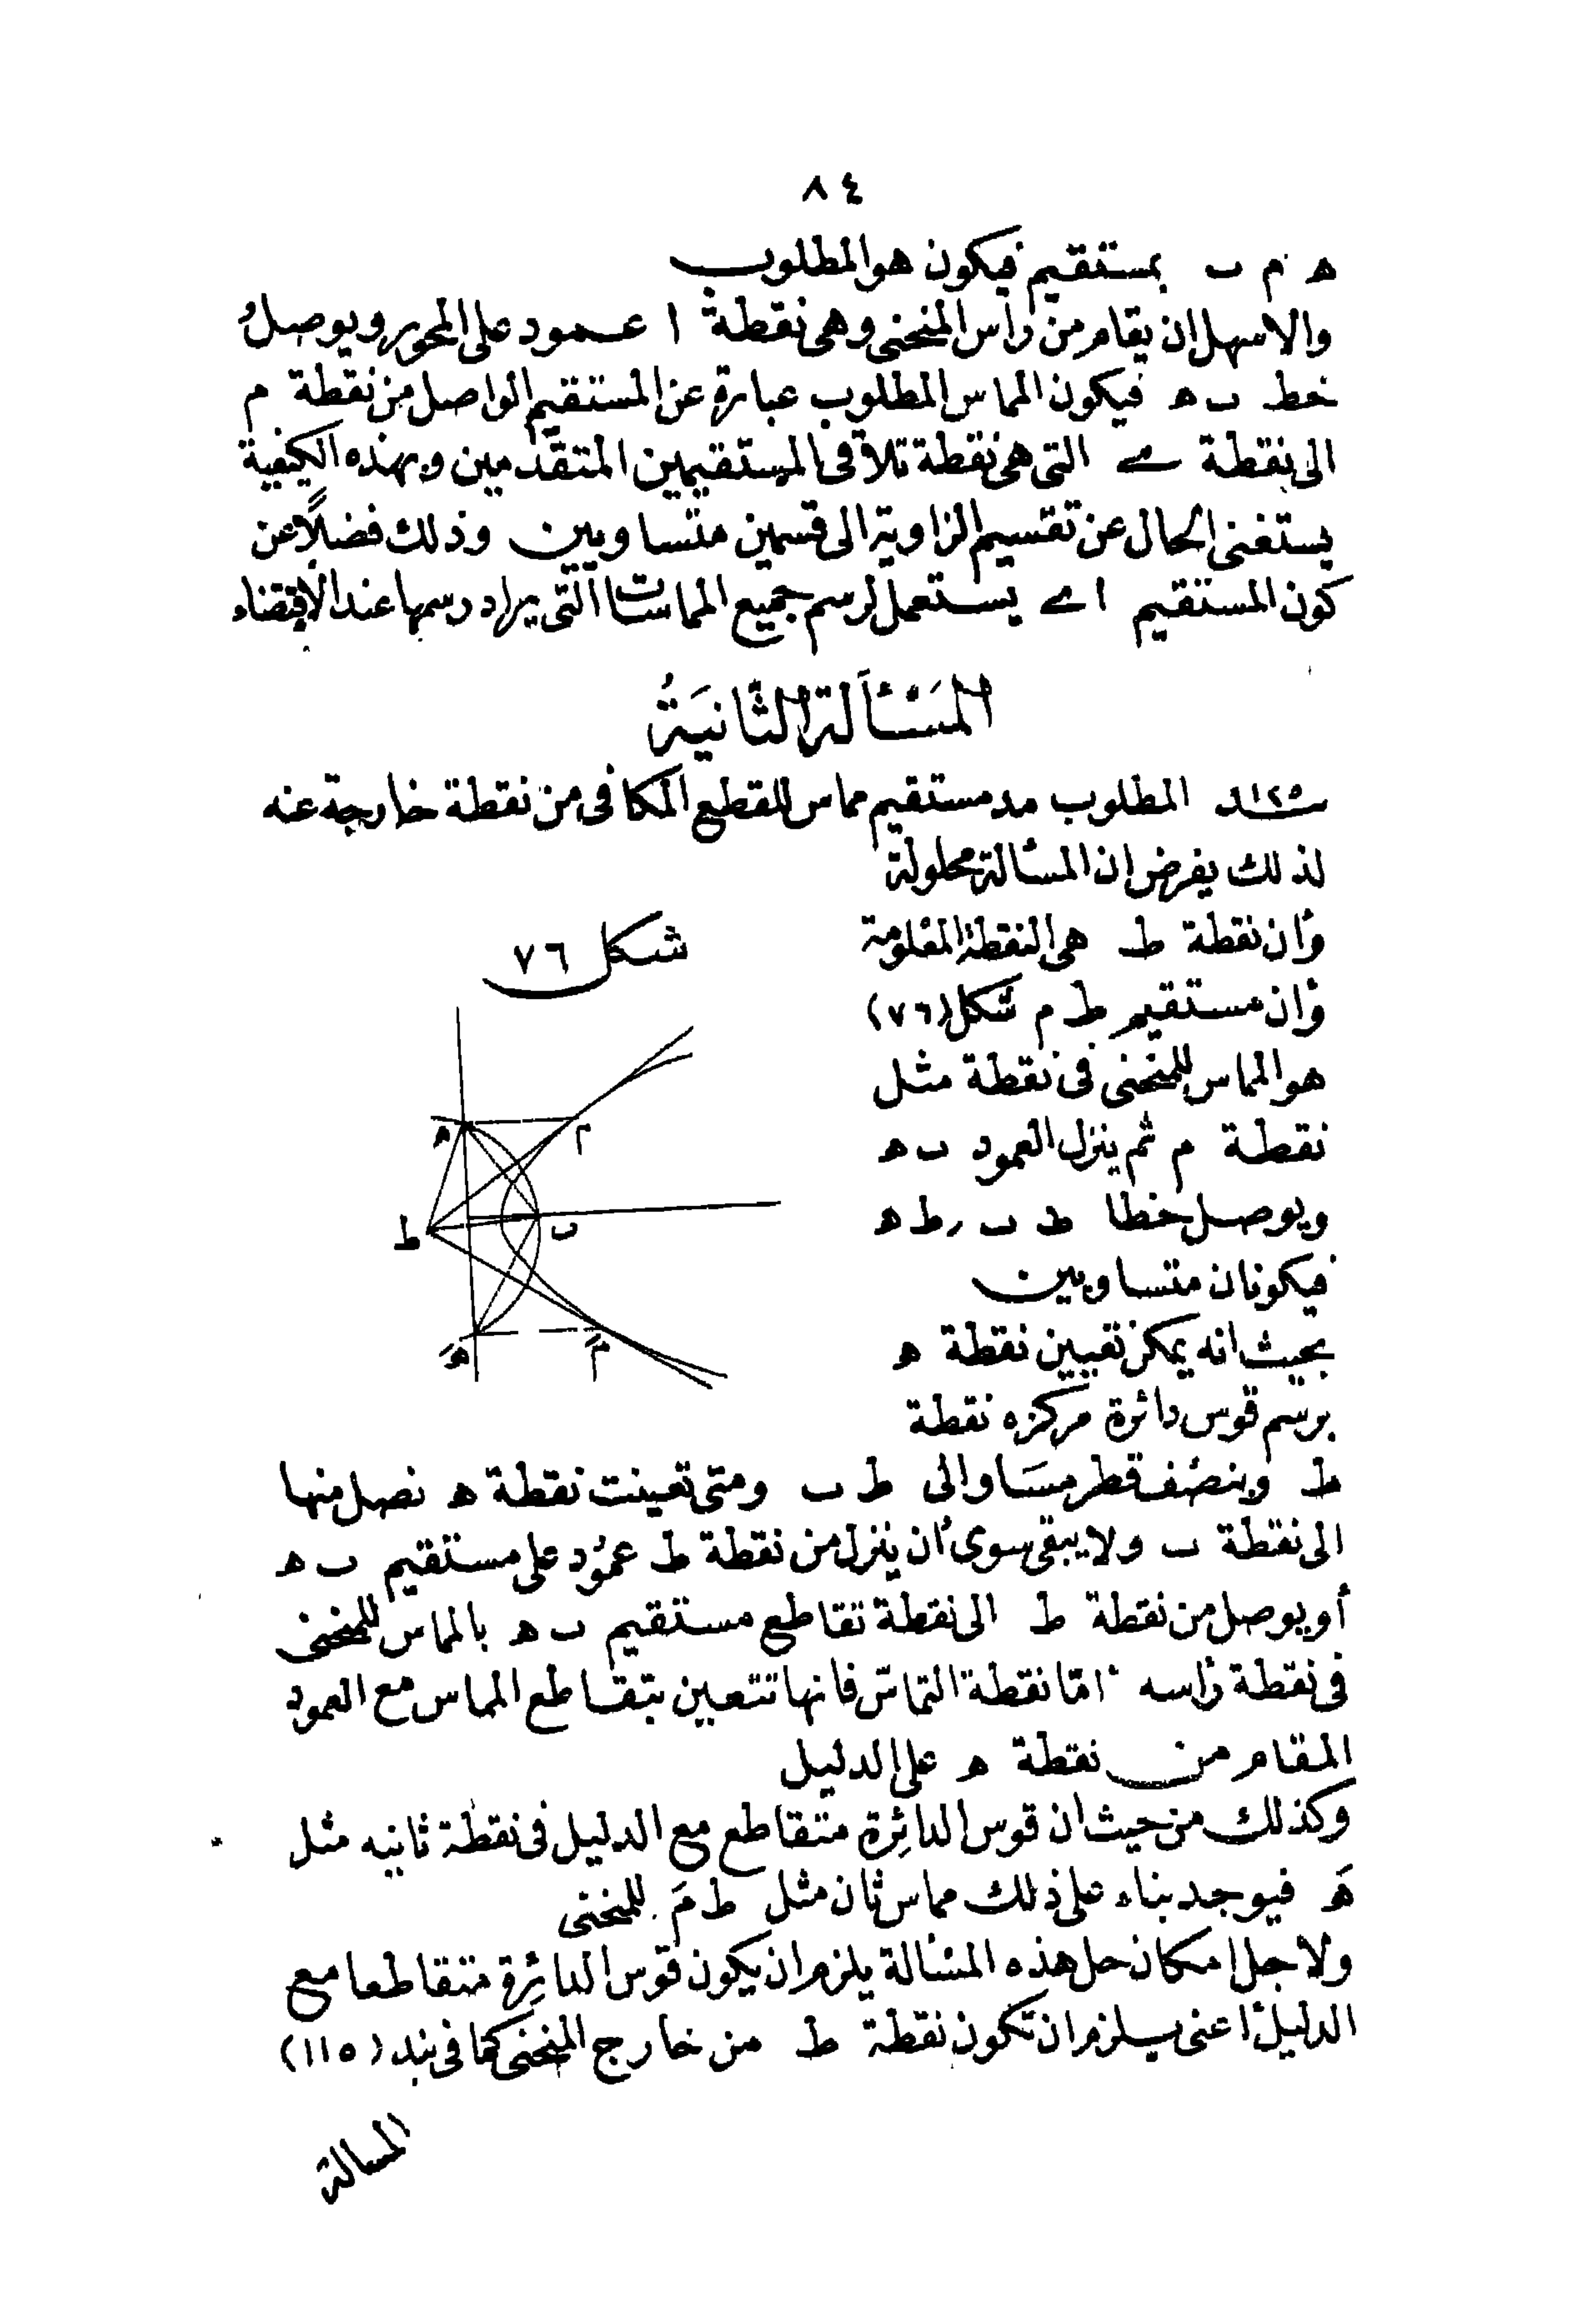 ٨٤
ه م ب بمستقيم فيكون هو المطلوب
والاسهل ان يقام من رأس المنحنى وهى نقطة ا عمود على المحور ويوصل
خط ب ه فيكون المماس المطلوب عبارة عن المستقيم الواصل من نقطة م
الى نقطة ى التى هى نقطة تلاقى المستقيمين المتقدمين وبهذه الكيفية
يستغنى الحال عن تقسيم الزاوية الى قسمين متساويين وذلك فضلاً عن
كون المستقيم اى يستعمل لرسم جميع المماسات التى يراد رسمها عند الاقتضاء
المَسْأَلة الثَّانيَةُ
المطلوب مد مستقيم مماس للقطع المكافى من نقطة خارجة عنه
لذلك يفرض ان المسألة محلولة
وأن نقطة ط هى النقطة المعلومة
وأن مستقيم ط م شكل (٧٦)
هو المماس للمنحنى فى نقطة مثل
نقطة م ثم ينزل العمود ب ه
ويوصل خطا ط ب ر ط ه
فيكونان متساويين
بحيث انه يمكن تعيين نقطة ه
برسم قوس دائرة مركزه نقطة
شكل ٧٦
ه
م
ط
ب
هَ
مَ
ط وبنصف قطر مسَاو الى ط ب ومتى تعينت نقطة ه نصل منها
الى نقطة ب ولا يبقى سوى أن ينزل من نقطة ط عمود على مستقيم ب ه
أو يوصل من نقطة ط الى نقطة تقاطع مستقيم ب ه بالمماس للمنحنى
فى نقطة رأسه امّا نقطة التماسّ فانها تتعين بتقاطع المماس مع العمود
المقام من نقطة ه على الدليل
وكذلك من حيث ان قوس الدائِرة متقاطع مع الدليل فى نقطة ثانيه مثل
هَ فيوجد بناء على ذلك مماس ثان مثل ط مَ للمنحنى
ولاجل امكان حل هذه المسألة يلزم ان يكون قوس الدائِرة متقاطعا مع
الدليل اعنى يلزم ان تكون نقطة ط من خارج المنحنى كما فى بند (١١٥)
المسالة